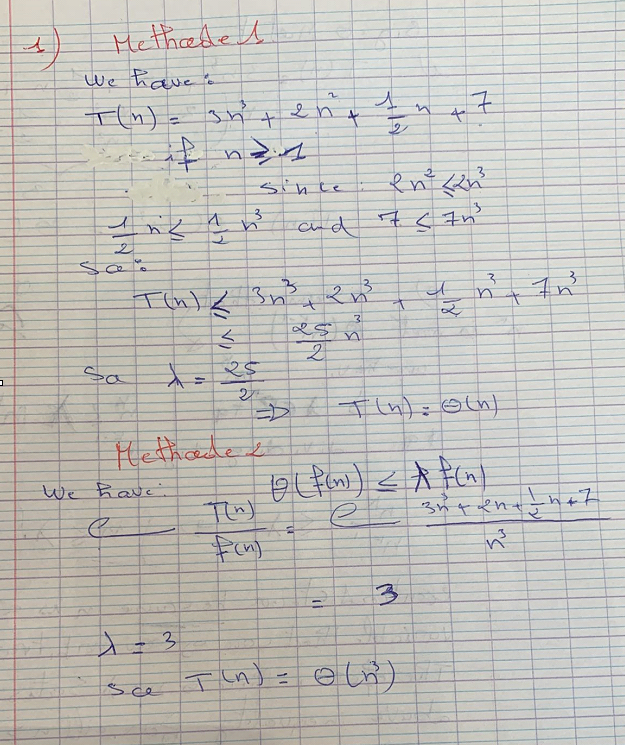 1) Methode 1
We have:
T(n) = 3n³ + 2n² + 1/2 n + 7
if n ≥ 1
since: 2n² ≤ 2n³
1/2 n ≤ 1/2 n³ and 7 ≤ 7n³
So:
T(n) ≤ 3n³ + 2n³ + 1/2 n³ + 7n³
≤ 25/2 n³
So λ = 25/2
=> T(n) = Θ(n)
Methode 2
We have: Θ(f(n)) ≤ λ f(n)
T(n)/f(n) = (3n³ + 2n + 1/2 n + 7)/n³
= 3
λ = 3
so T(n) = Θ(n³)